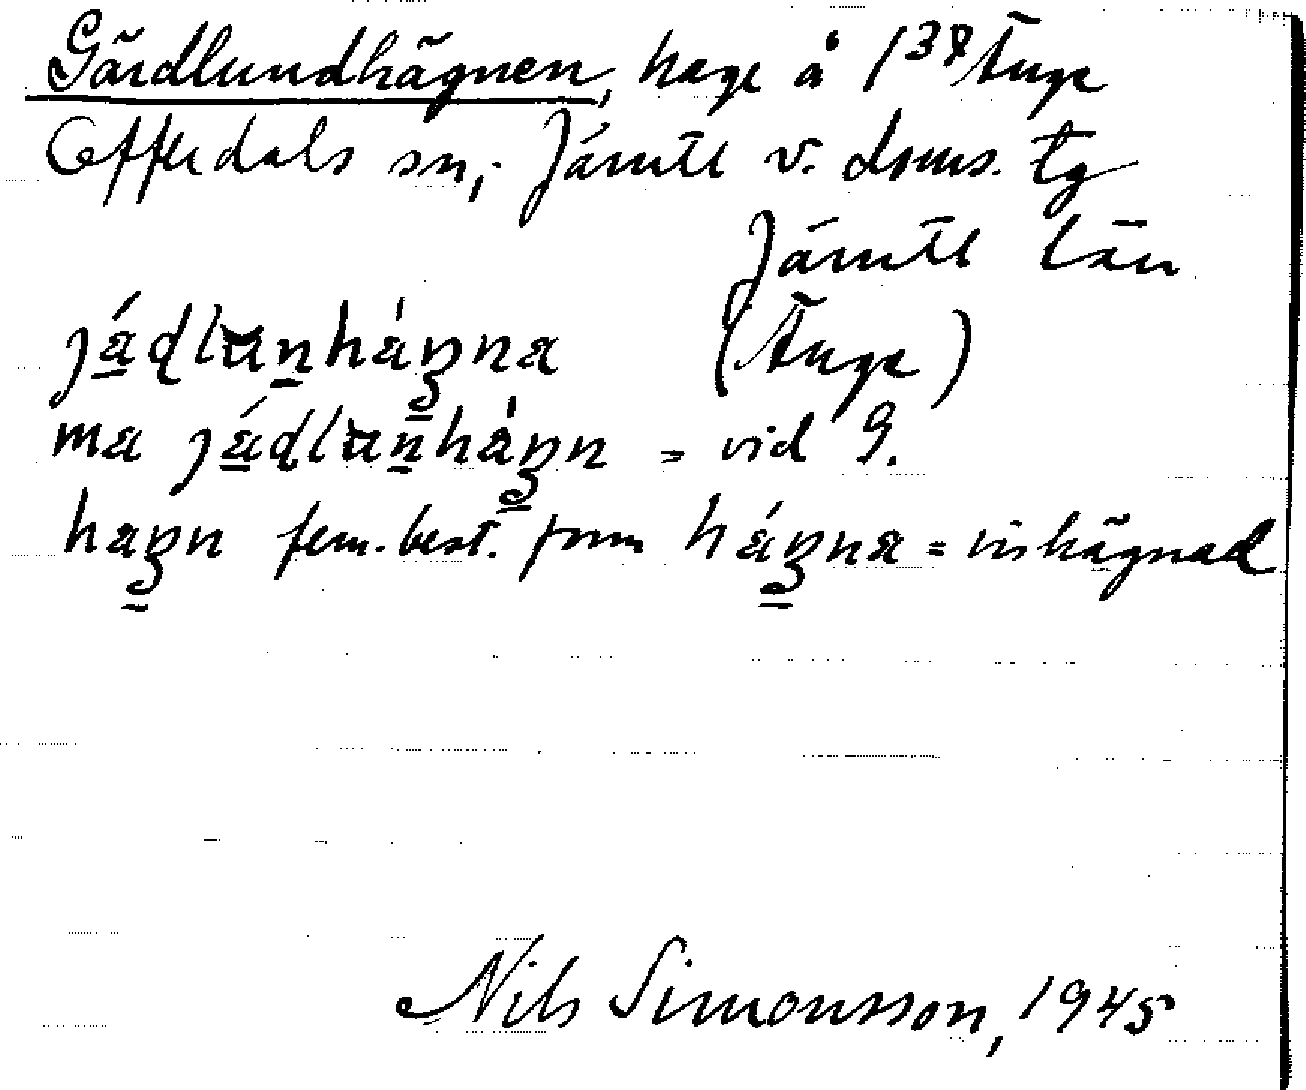 Gärdlundhägnen, hage å 1³⁸ Änge
Offerdals sn, Jämtl v. doms. tg
Jämtl län
jádlanhágna (Änge)
ma jádlanhágn = vid G.
hagn fem. best. form hágna = inhägnad
Nils Simonsson, 1945